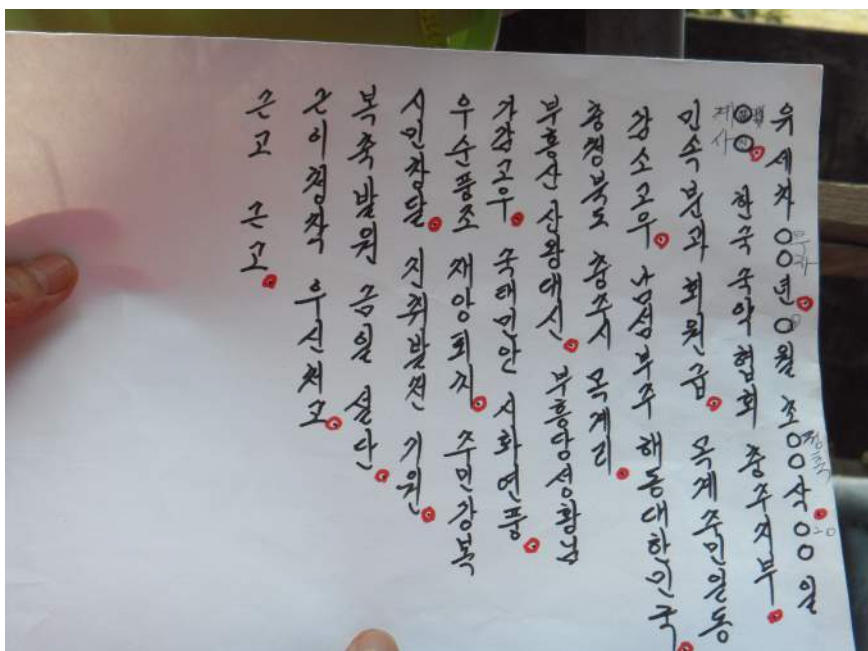 유세차 ○○년 ○월 초○○삭 ○○일
한국국악협회 충주지부
민속분과 회원급 목계주민일동
감소고우 남섬부주 해동대한민국
충청북도 충주시 목계리
부흥산 산왕대신 부흥당성황님
가감고우 국태민안 시화연풍
우순풍조 재앙퇴치 주민강복
시민창달 진취발전 기원
복축발원 금일 설단
근이청작 우신처고
근고 근고